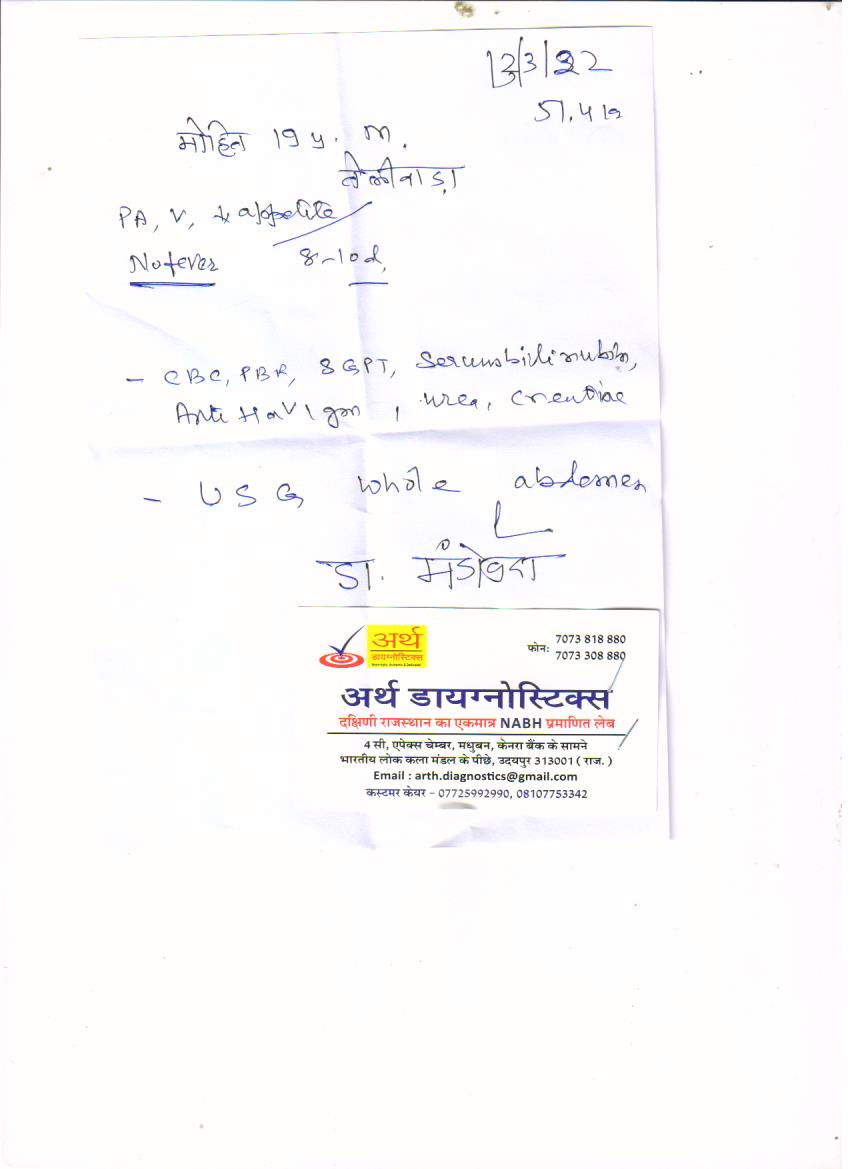 13/3/22
51.4 kg
मोहित 19 y. m.
तेलीवाड़ा
PA, V, ↓ appetite
No fever 8-10 d,
- CBC, PBF, SGPT, Serum bilirubin,
Anti HAV Igm, urea, Creatine
- USG whole abdomen
डा.
अर्थ
डायग्नोस्टिक्स
फोन: 7073 818 880
7073 308 880
अर्थ डायग्नोस्टिक्स
दक्षिणी राजस्थान का एकमात्र NABH प्रमाणित लेब
4 सी, एपेक्स चेम्बर, मधुबन, केनरा बैंक के सामने
भारतीय लोक कला मंडल के पीछे, उदयपुर 313001 ( राज. )
Email : arth.diagnostics@gmail.com
कस्टमर केयर - 07725992990, 08107753342